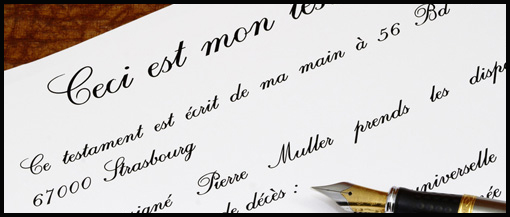 Ceci est mon
Ce testament est écrit de ma main à 56 Bd
67000 Strasbourg
Pierre Muller prends les
de décès : universelle